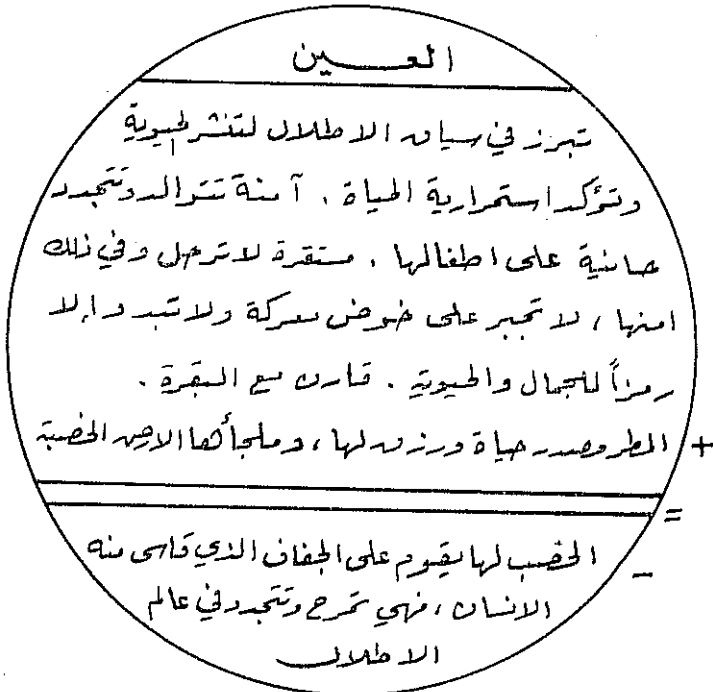 العـــــين
تبرز في سياق الاطلال لتنشر الحيوية
وتؤكد استمرارية الحياة . آمنة تتوالد وتتجدد
حانية على اطفالها . مستقرة لا ترحل وفي ذلك
امنها ، لا تجبر على خوض معركة ولا تبدو إلا
رمزاً للجمال والحيوية . قارن مع البقرة .
+ المطر مصدر حياة ورزق لها ، وملجأها الارض الخصبة
=
- الخصب لها يقوم على الجفاف الذي قاسى منه
الانسان ، فهي تمرح وتتجدد في عالم
الاطلال